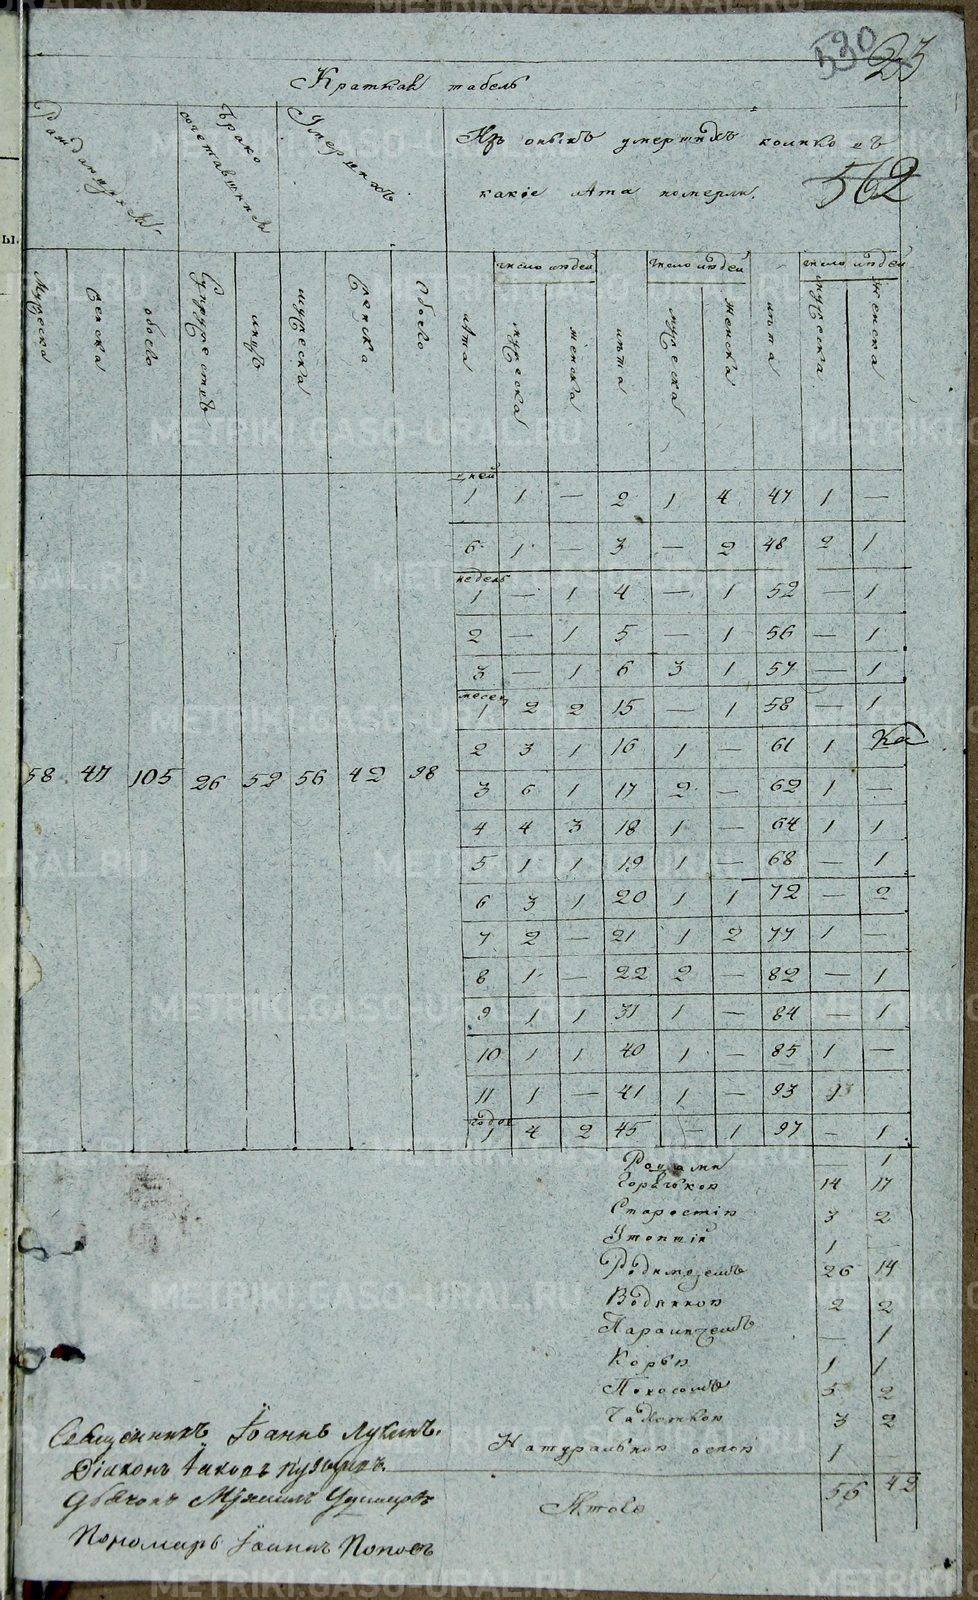 530 23
Краткая табель
Рожденныхъ
Брако сочетавшихся
Умершихъ
Изъ оныхъ умершихъ колико въ
какіе лѣта померли.
562
число людей число людей число людей
мужеска женска обоего Супружествъ лицъ мужеска женска Обоего лѣта мужеска женска лѣта мужеска женска лѣта мужеска женска
дней
1 1 — 2 1 4 47 1 —
6 1 — 3 — 2 48 2 1
недель
1 — 1 4 — 1 52 — 1
2 — 1 5 — 1 56 — 1
3 — 1 6 3 1 57 — 1
месец
1 2 2 15 — 1 58 — 1
2 3 1 16 1 — 61 1
58 47 105 26 52 56 42 98
3 6 1 17 2 — 62 1 —
4 4 3 18 1 — 64 1 1
5 1 1 19 1 — 68 — 1
6 3 1 20 1 1 72 — 2
7 2 — 21 1 2 77 1 —
8 1 — 22 2 — 82 — 1
9 1 1 31 1 — 84 — 1
10 1 1 40 1 — 85 1 —
11 1 — 41 1 — 93
годов
1 4 2 45 — 1 97 — 1
Родами 1
Горячкой 14 17
Старостію 3 2
1 —
Родимцемъ 26 14
Водяною 2 2
Параличемъ — 1
Корью 1 1
Поносомъ 5 2
Чахоткою 3 2
Натуральной оспой 1 —
Итого 56 42
Священникъ Іоаннъ Лукинъ.
Діаконъ Іаковъ
Дьячокъ Михаилъ
Пономарь Іоаннъ Поповъ
METRIKI.GASO-URAL.RU